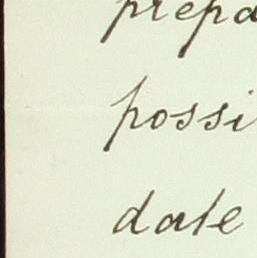 prepa
possi
date